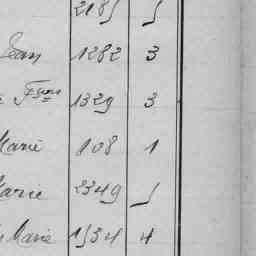 2185 5
Jean 1282 3
Fçois 1329 3
Marie 808 1
Marie 2349 5
Marie 1534 4